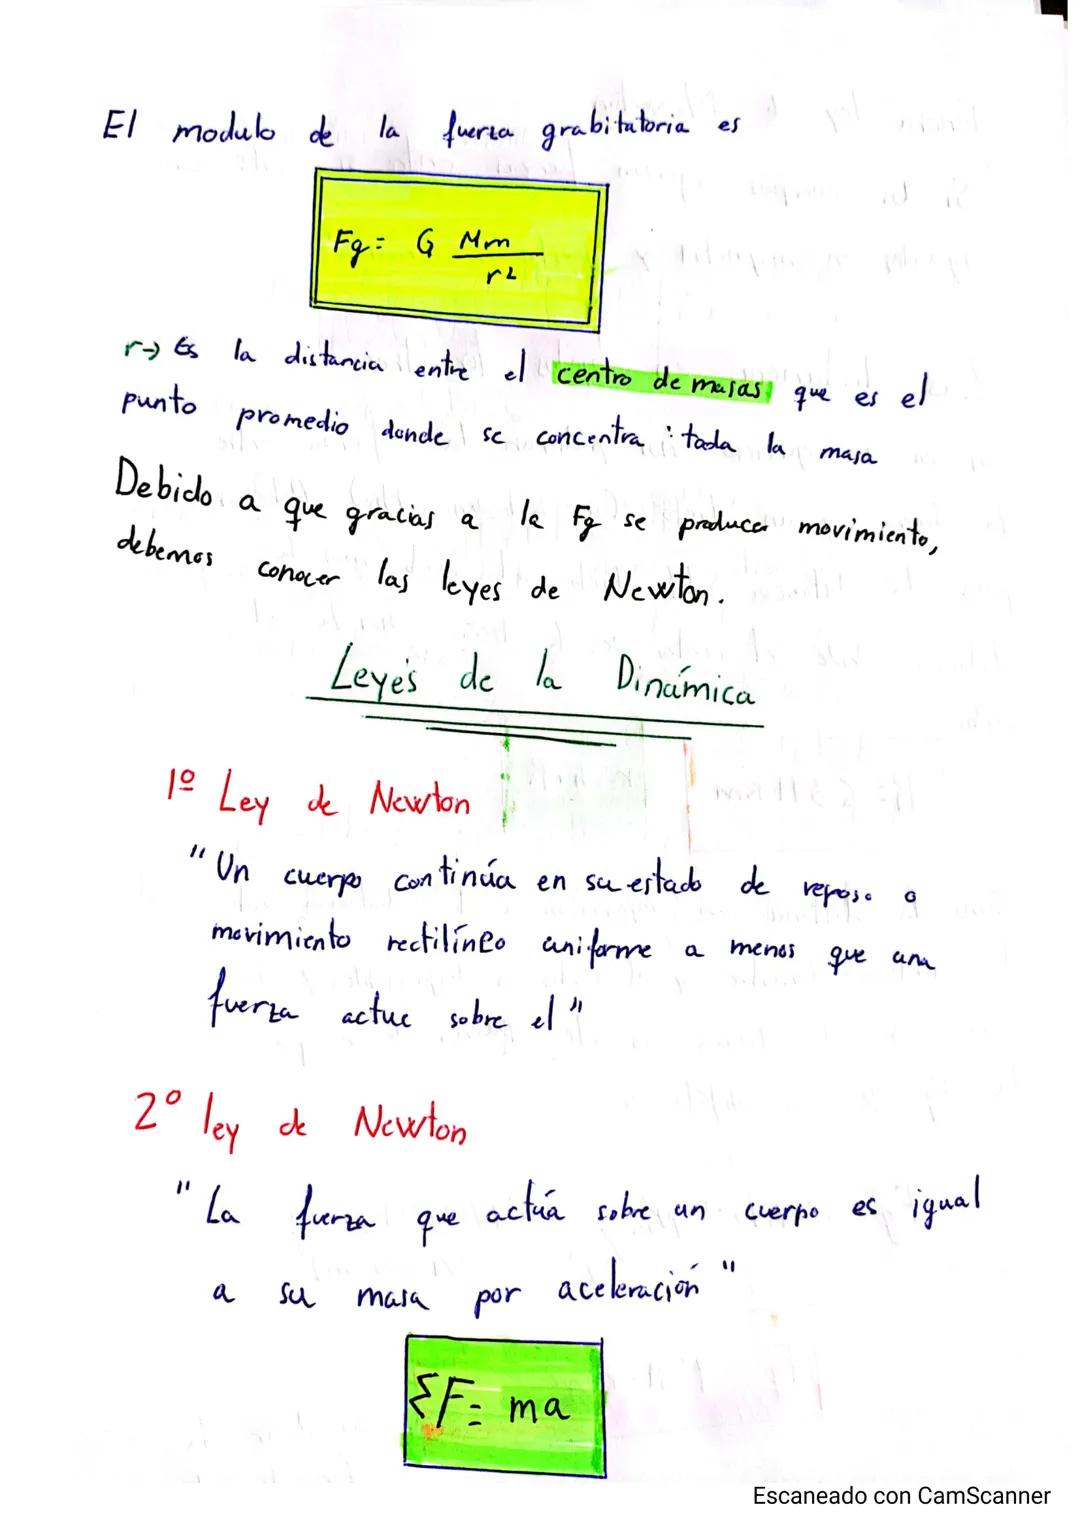 El modulo de la fuerza grabitatoria es
Fg = G Mm
r²
r→ Es la distancia entre el centro de masas que es el
punto promedio donde se concentra toda la masa
Debido a que gracias a la Fg se produce movimiento,
debemos conocer las leyes de Newton.
Leyes de la Dinámica
1º Ley de Newton
"Un cuerpo continúa en su estado de reposo o
movimiento rectilíneo uniforme a menos que una
fuerza actue sobre el"
2º ley de Newton
"La fuerza que actúa sobre un cuerpo es igual
a su masa por aceleración"
ΣF = ma
Escaneado con CamScanner